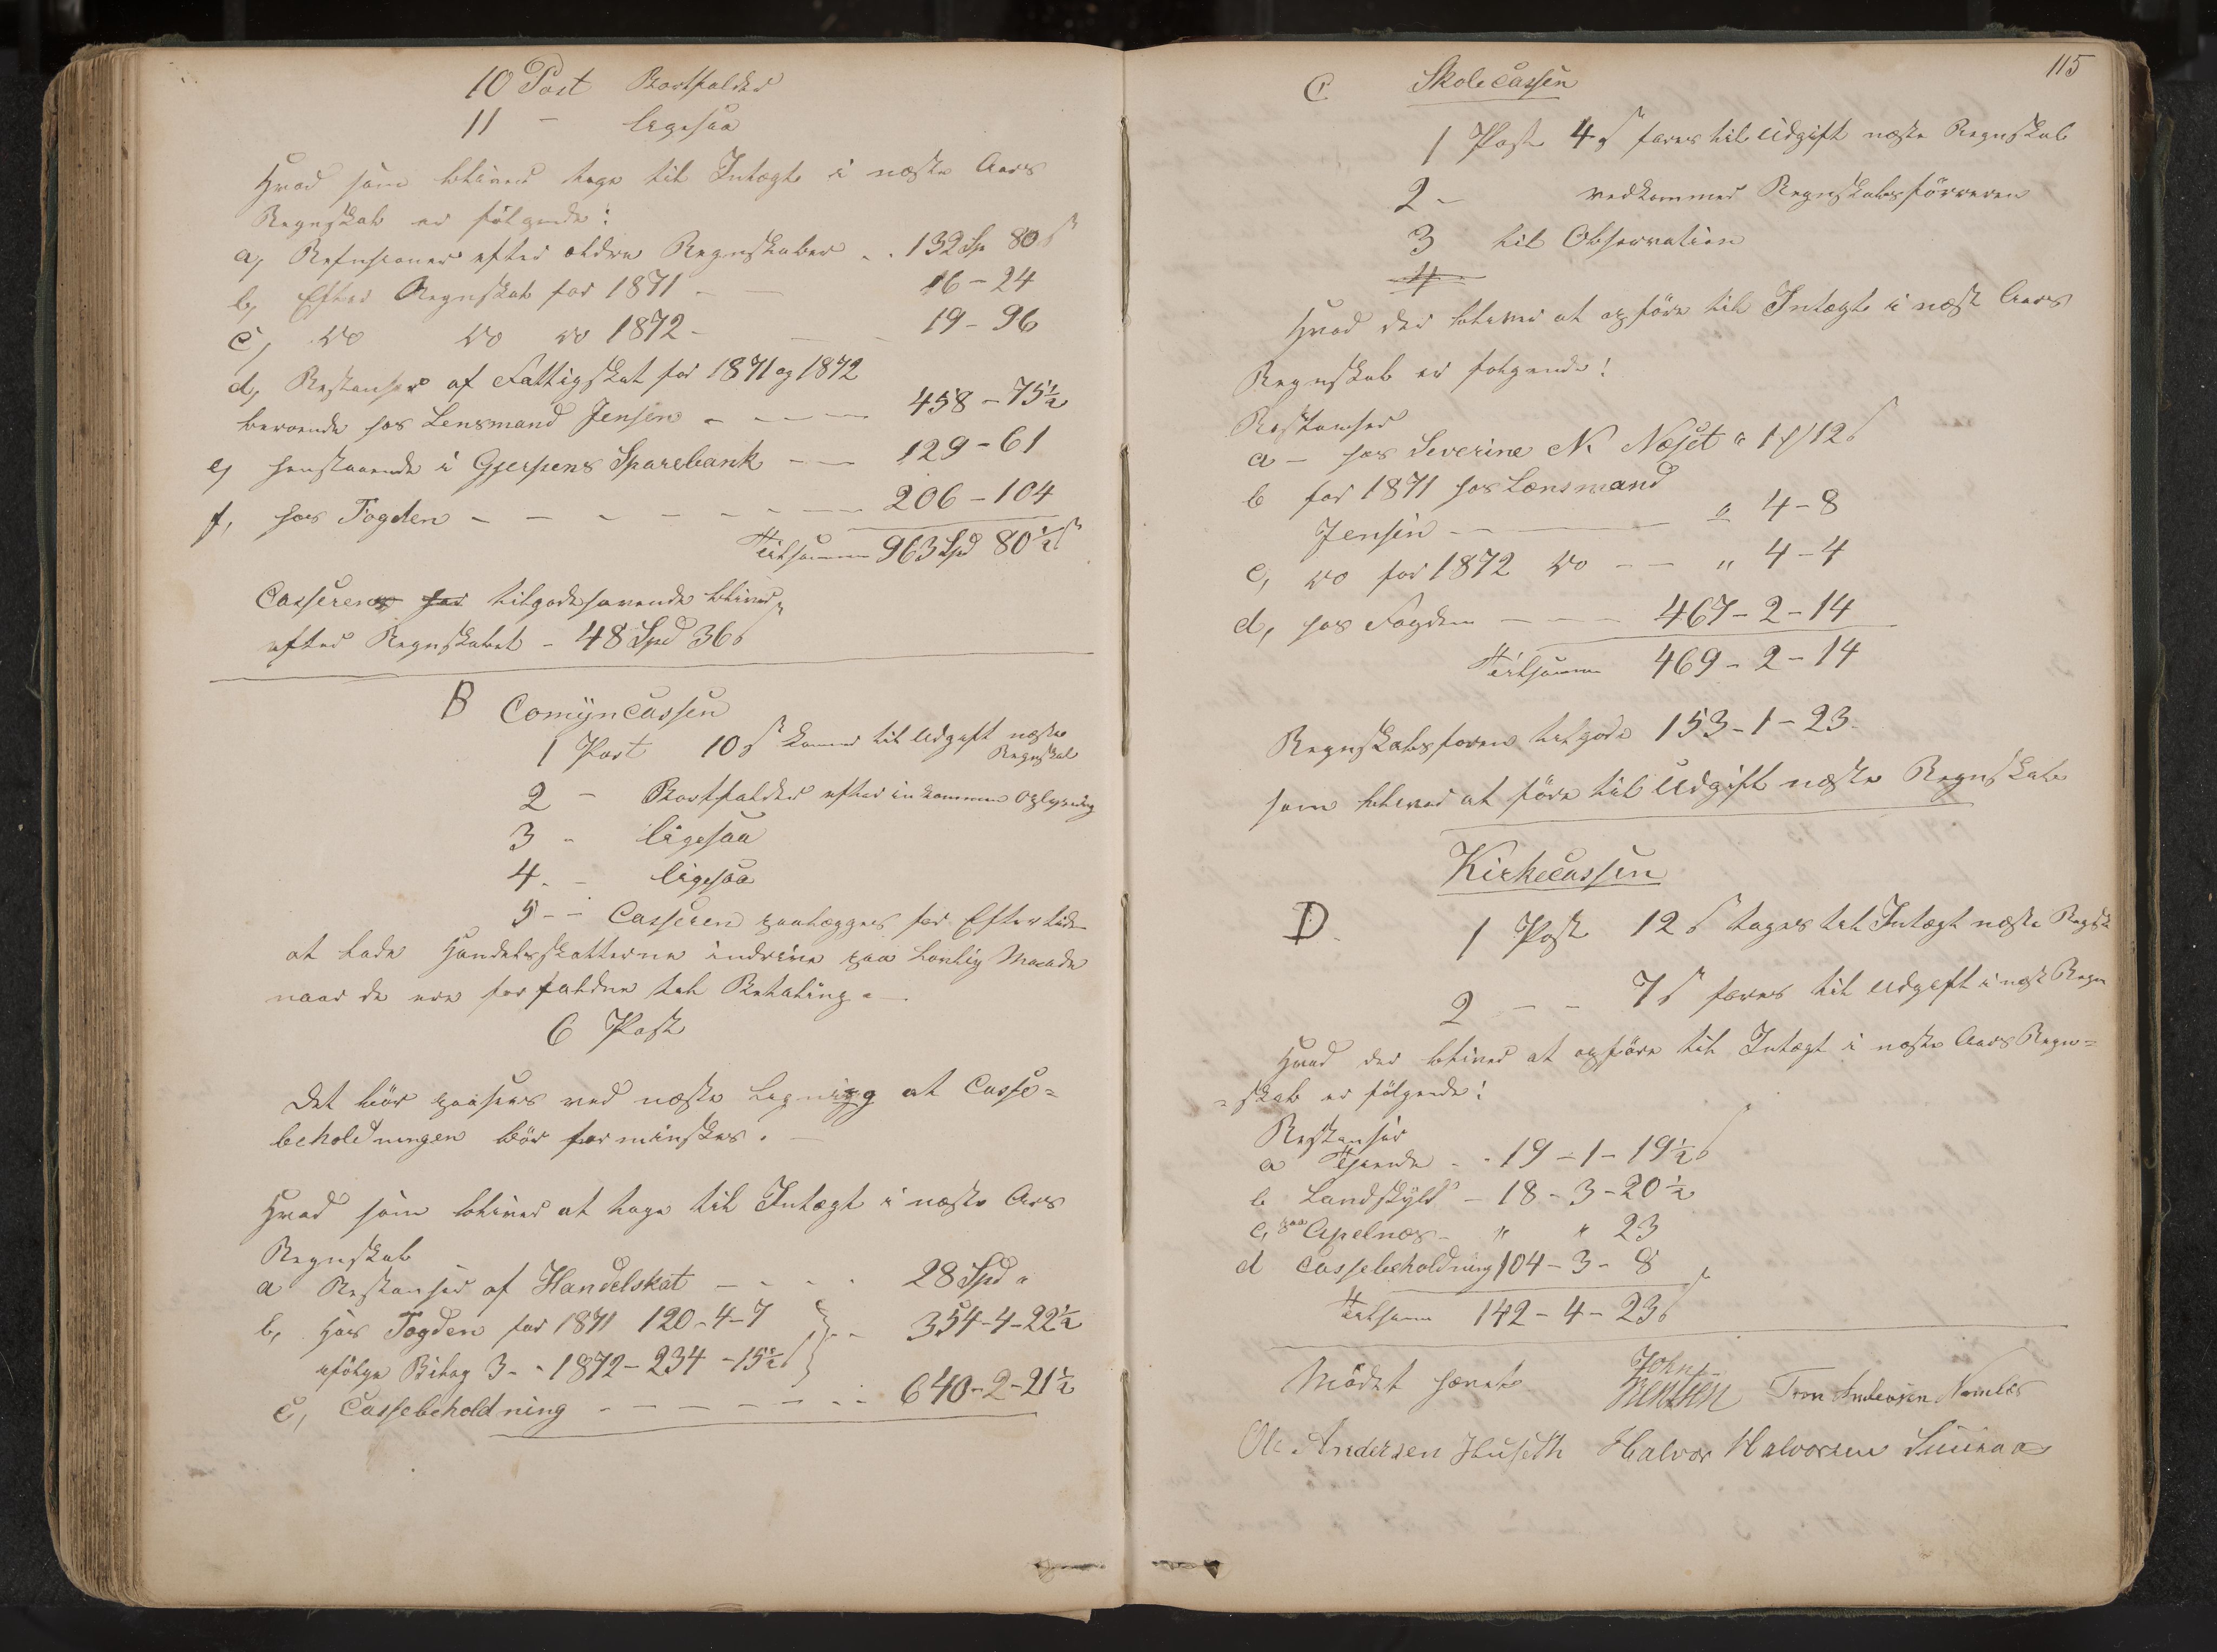 10 Post Bortfalder
11 - ligesaa
Hvad som bliver tage til Intægt i næste Aars
Regnskab er følgende:
a, Refusioner efter ældre Regnskaber . . 132 Sp 80 s
b, Efter Regnskab for 1871 - - 16 - 24
c, do do do 1872 - - - 19 - 96
d, Restanser af Fattigskat for 1871 og 1872
beroende hos Lensmand Jensen - - - - 458 - 75½
e, henstaaende i Gjerpens Sparebank - - 129 - 61
f, hos Fogden - - - - - - - - 206 - 104
Tilsammen 963 Spd 80½ s
Casseren tilgodehavende bliver
efter Regnskabet - 48 Spd 36 s
B Comyncassen
1 Post 10 s kommer til Udgift næste
Regnskab
2 - Bortfalder efter inkommen Oplysning
3 - ligesaa
4 - - ligesaa
5 - - Casseren paalægges for Eftertiden
at lade Handelsskatterne indrive paa lovlig Maade
naar de ere forfaldne til Betaling. -
6 Post
Det bør paasees ved næste Ligning at Casse=
beholdningen bør forminskes. -
Hvad som bliver at tage til Intægt i næste Ars
Regnskab
a Restanser af Handelskat - - - . 28 Spd "
b, Hos Fogden for 1871 120 - 4 - 7 } - - 354 - 4 - 22½
ifølge Bilag 3 - - 1872 - 234 - 15½ s
c, Cassebeholdning - - - - - - - - 640 - 2 - 21½
115
C Skolecassen
1 Post 4 s føres til Udgift næste Regnskab
2 - vedkommer Regnskabsførreren
3 til Observation
4
Hvad der bliver at opføre til Intægt i næst Aars
Regnskab er følgende!
Restanser
a - hos Severine N. Næset " 1 /12 s
b for 1871 hos Lænsmand
Jensen - - - " 4 - 8
c, do for 1872 do - - " 4 - 4
d, hos Fogden - - - - 467 - 2 - 14
Tilsammen 469 - 2 - 14
Regnskabsføren tilgode 153 - 1 - 23 -
som bliver at føre til Udgift næste Regnskab
Kirkecassen
D. 1 Post 12 s tages til Intægt næste Regsk
2 - - 7 s føres til Udgift i næst Regn
Hvad der bliver at opføre til Intægt i næste Aars Regn=
=skab er følgende!
Restanser
a Tiende - - 19 - 1 - 19½ s
b Landskyld - 18 - 3 - 20½
c, paa Apelnæs - " " 23
d Cassebeholdning 104 - 3 - 8
Tilsam 142 - 4 - 23 s
Mødet hævet. John
Bentsen
Ole Andersen Huseth Halvor Halvorsen